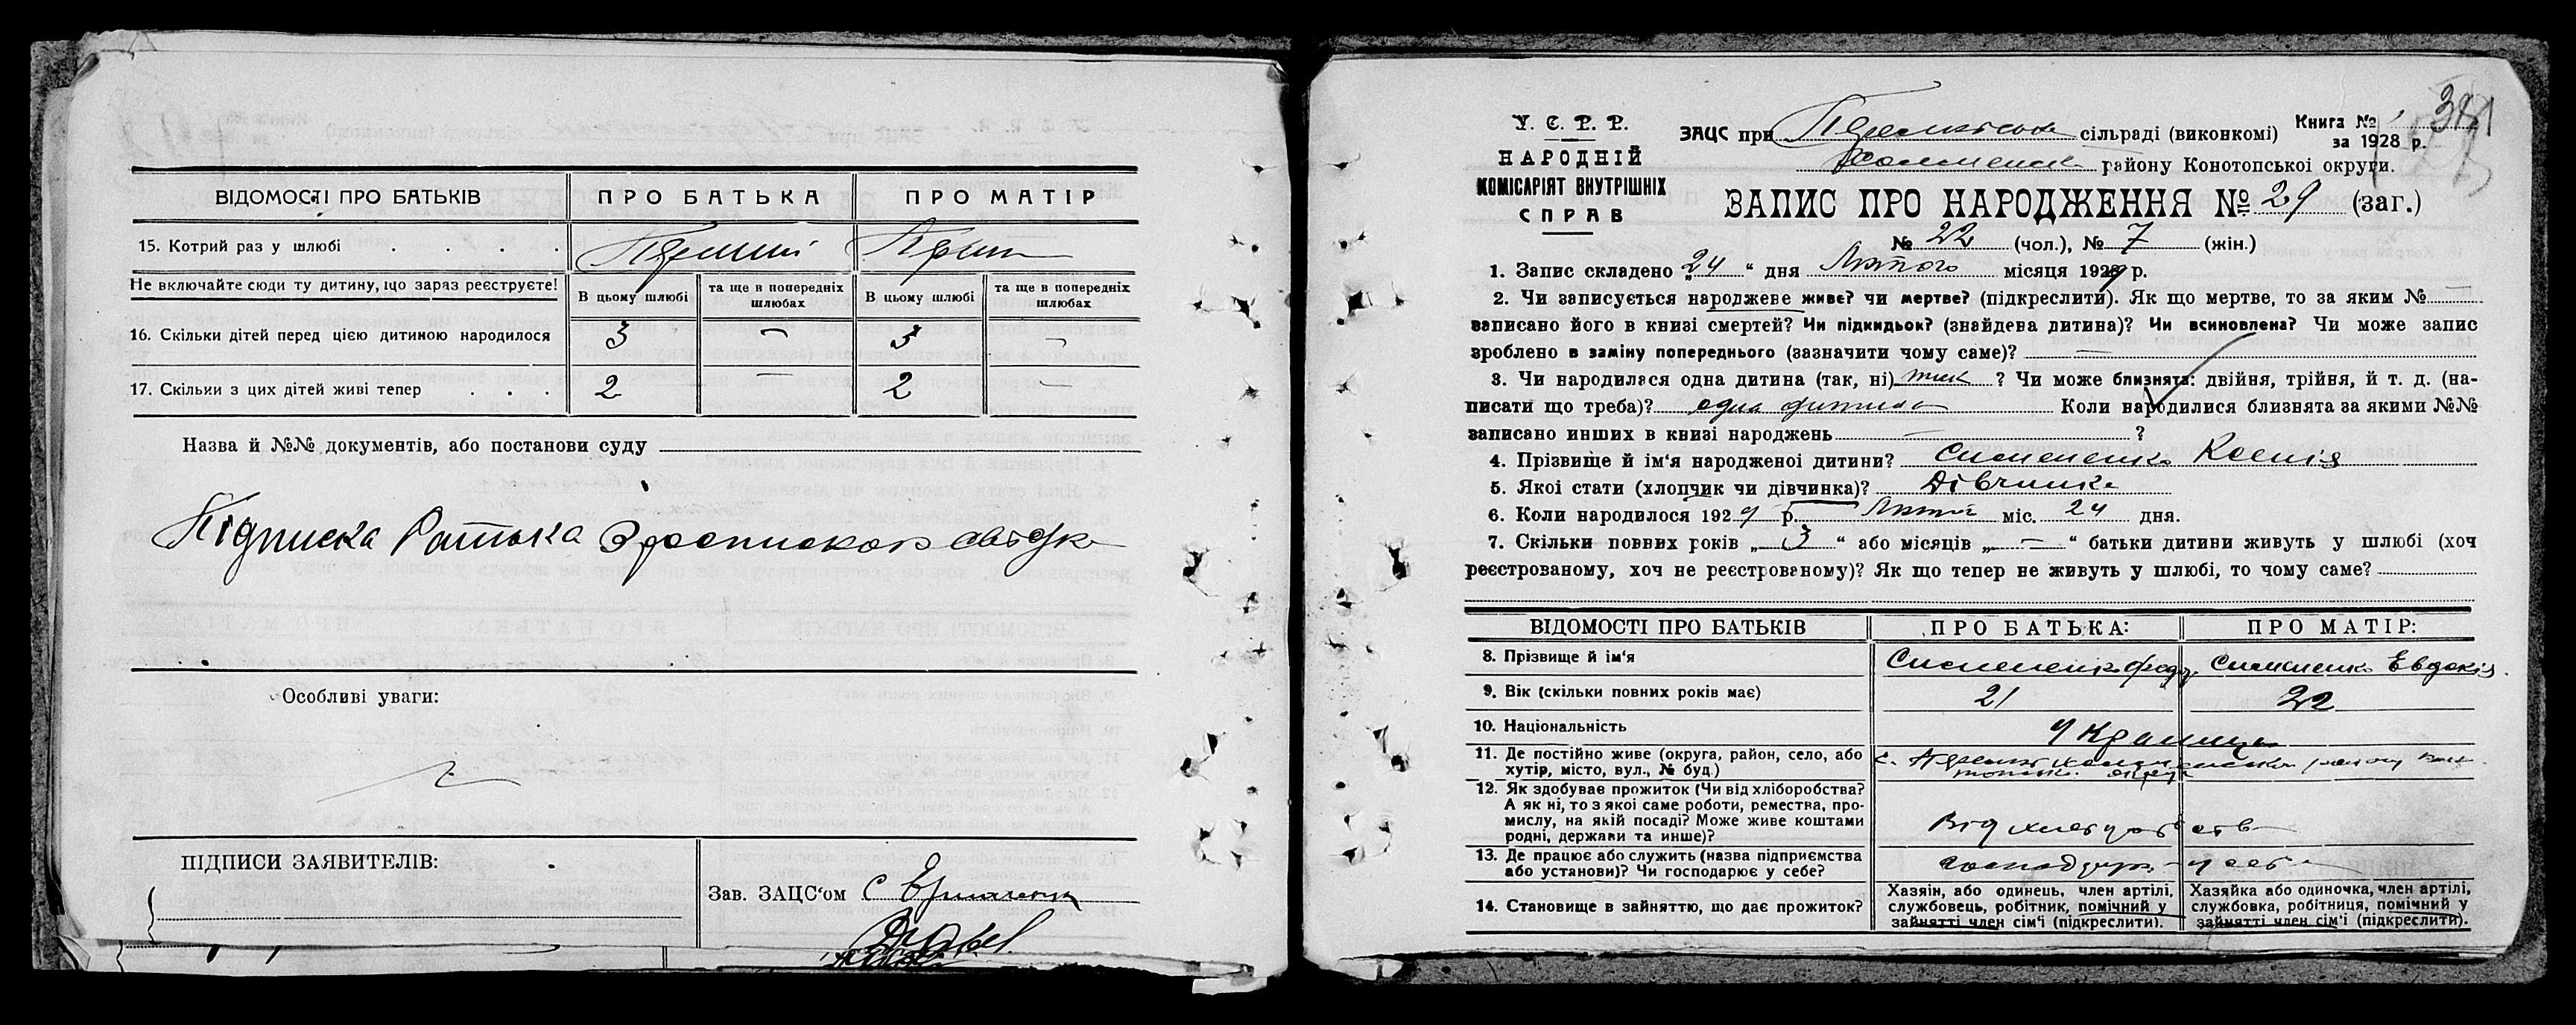 ВІДОМОСТІ ПРО БАТЬКІВ ПРО БАТЬКА ПРО МАТІР
15. Котрий раз у шлюбі . . . . Перший Перш
Не включайте сюди ту дитину, що зараз реєструєте! В цьому шлюбі та ще в попередніх шлюбах В цьому шлюбі та ще в попередніх шлюбах
16. Скільки дітей перед цією дитиною народилося 3 — 3 —
17. Скільки з цих дітей живі тепер . . . 2 — 2 —
Назва й №№ документів, або постанови суду
Підписка Батька
Особливі уваги:
ПІДПИСИ ЗАЯВИТЕЛІВ:
Зав. ЗАЦС'ом
У. С. Р. Р.
НАРОДНІЙ
КОМІСАРІЯТ ВНУТРІШНІХ
СПРАВ
ЗАЦС при сільраді (виконкомі)
району Конотопської округи.
Книга №
за 1928 р.
ЗАПИС ПРО НАРОДЖЕННЯ № 29 (заг.)
№ 22 (чол.), № 7 (жін.)
1. Запис складено „24 “ дня Лютого місяця 1929 р.
2. Чи записується народжене живе? чи мертве? (підкреслити). Як що мертве, то за яким № —
записано його в книзі смертей? Чи підкидьок? (знайдена дитина)? Чи всиновлена? Чи може запис
зроблено в заміну попереднього (зазначити чому саме)? —
3. Чи народилася одна дитина (так, ні) так ? Чи може близнята: двійня, трійня, й т. д. (на-
писати що треба)? одна дитина Коли народилися близнята за якими №№
записано инших в книзі народжень — ?
4. Прізвище й ім'я народженої дитини? Симоненко Ксенія
5. Якої стати (хлопчик чи дівчинка)? Дівчинка
6. Коли народилося 1929 р. Лютий міс. 24 дня.
7. Скільки повних років „ 3 “ або місяців „ — “ батьки дитини живуть у шлюбі (хоч
реєстрованому, хоч не реєстрованому)? Як що тепер не живуть у шлюбі, то чому саме?
ВІДОМОСТІ ПРО БАТЬКІВ ПРО БАТЬКА: ПРО МАТІР:
8. Прізвище й ім'я Симоненко Федір Симоненко Евдокія
9. Вік (скільки повних років має) 21 22
10. Національність Українці
11. Де постійно живе (округа, район, село, або
хутір, місто, вул., № буд.)
12. Як здобуває прожиток (Чи від хліборобства?
А як ні, то з якої саме роботи, ремества, про-
мислу, на якій посаді? Може живе коштами
родні, держави та инше)? Від хліборобства
13. Де працює або служить (назва підприємства
або установи)? Чи господарює у себе? господарює у себе
14. Становище в зайняттю, що дає прожиток?
Хазяін, або одинець, член артілі,
службовець, робітник, помічний у
зайнятті член сім'ї (підкреслити).
Хазяйка або одиночка, член артілі,
службовка, робітниця, помічний у
зайнятті член сім'ї (підкреслити).